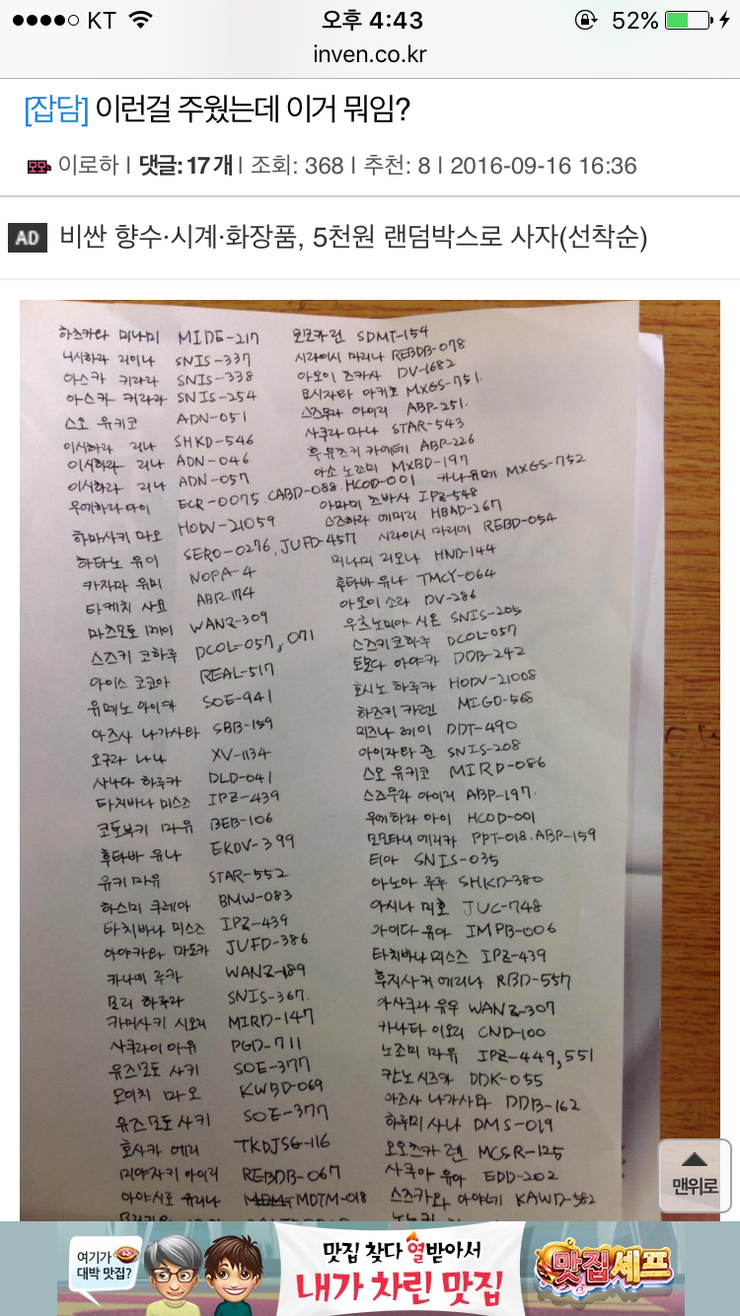 KT 오후 4:43 52%
inven.co.kr
[잡담] 이런걸 주웠는데 이거 뭐임?
이로하 | 댓글: 17개 | 조회: 368 | 추천: 8 | 2016-09-16 16:36
AD 비싼 향수·시계·화장품, 5천원 랜덤박스로 사자(선착순)
하즈카와 미나미 MIDE-217
니시하라 리이나 SNIS-337
아스카 키라라 SNIS-338
아스카 키라라 SNIS-254
스오 유키코 ADN-051
이시하라 리나 SHKD-546
이시하라 리나 ADN-046
이시하라 리나 ADN-057
우에하라 아이 ECR-0075, CABD-088, HCOD-001
하마사키 마오 HODV-21059
하타노 유이 SERO-0276, JUFD-457
카자마 유미 NOPA-4
타케치 사요 ABP-174
마츠모토 메이 WANZ-309
스즈키 코하루 DCOL-057, 071
아이스 코코아 REAL-517
유메노 아이카 SOE-941
아즈사 나가사타 SBB-159
오구라 나나 XV-1134
사나다 하루카 DLD-041
타치바나 미스즈 IPZ-439
코토부키 마유 BEB-106
후타바 유나 EKDV-399
유키 마유 STAR-552
하스미 쿠레아 BMW-083
타치바나 미스즈 IPZ-439
아야카와 마도카 JUFD-386
카나에 루카 WANZ-189
모리 하루라 SNIS-367.
카미사키 시오리 MIRD-147
사쿠라이 아유 PGD-711
유즈모토 사키 SOE-377
모이치 마오 KWBD-069
유즈모토 사키 SOE-377
호사카 에리 TKDJSG-116
미야자키 아이리 REBDB-067
아야시로 유리나 MDTM-018
모모카 린 SDMT-154
시라이시 마리나 REBDB-078
아오이 츠카사 DV-1682
요시자와 아키호 MXGS-751.
스즈무라 아이리 ABP-251.
사쿠라 마나 STAR-543
후유즈키 카에데 ABP-226
아소 노조미 MXBD-197
카나 유메 MXGS-752
아마미 츠바사 IPZ-548
스즈하라 에미리 HBAD-267
시라이시 마리에 REBD-054
미나미 리오나 HND-144
후타바 유나 TMCY-064
아오이 소라 DV-286
우츠노미야 시온 SNIS-205
스즈키 코하루 DCOL-057
토모다 아야카 DDB-242
호시노 하루카 HODV-21008
하즈키 카렌 MIGD-568
미즈나 레이 DDT-490
아이자와 준 SNIS-208
스오 유키코 MIRD-086
스즈무라 아이리 ABP-197.
우에하라 아이 HCOD-001
모모타니 에리카 PPT-018. ABP-159
티아 SNIS-035
아노아 루루 SHKD-380
아시나 미호 JUC-748
아이다 유아 IMPB-006
타치바나 미스즈 IPZ-439
후지사키 에리나 RBD-557
아사쿠라 유우 WANZ-307
카나타 이오리 CND-100
노조미 마유 IPZ-449, 551
칸노 시즈카 DDK-055
아즈사 나가사타 DDB-162
하루미 사나 DMS-019
오오츠카 렌 MCSR-125
사쿠아 유아 EDD-202
스즈카와 아야네 KAWD-582
맨위로
여기가 대박 맛집?
맛집 찾다 열받아서
내가 차린 맛집
맛집셰프